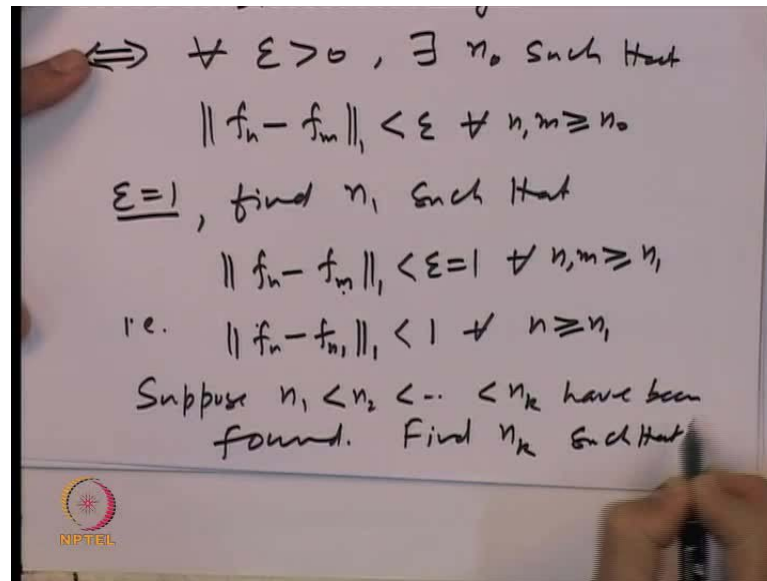 ⟺ ∀ ε>0, ∃ n₀ such that
‖ fₙ − fₘ ‖₁ < ε ∀ n,m ≥ n₀
ε=1, find n₁ such that
‖ fₙ − fₘ ‖₁ < ε=1 ∀ n,m ≥ n₁
i.e. ‖ fₙ − fₙ₁ ‖₁ < 1 ∀ n ≥ n₁
Suppose n₁ < n₂ < -- < nₖ have been
found. Find nₖ such that
NPTEL